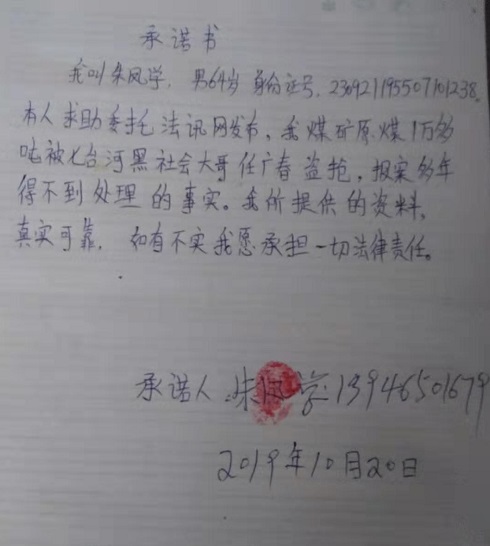 承诺书
我叫朱凤学，男64岁 身份证号，230921195507101238，
本人求助委托法讯网发布，我煤矿原煤1万多
吨被七台河黑社会大哥任广春盗抢，报案多年
得不到处理的事实。我所提供的资料，
真实可靠，如有不实我愿承担一切法律责任。
承诺人：朱凤学13946501679
2019年10月20日